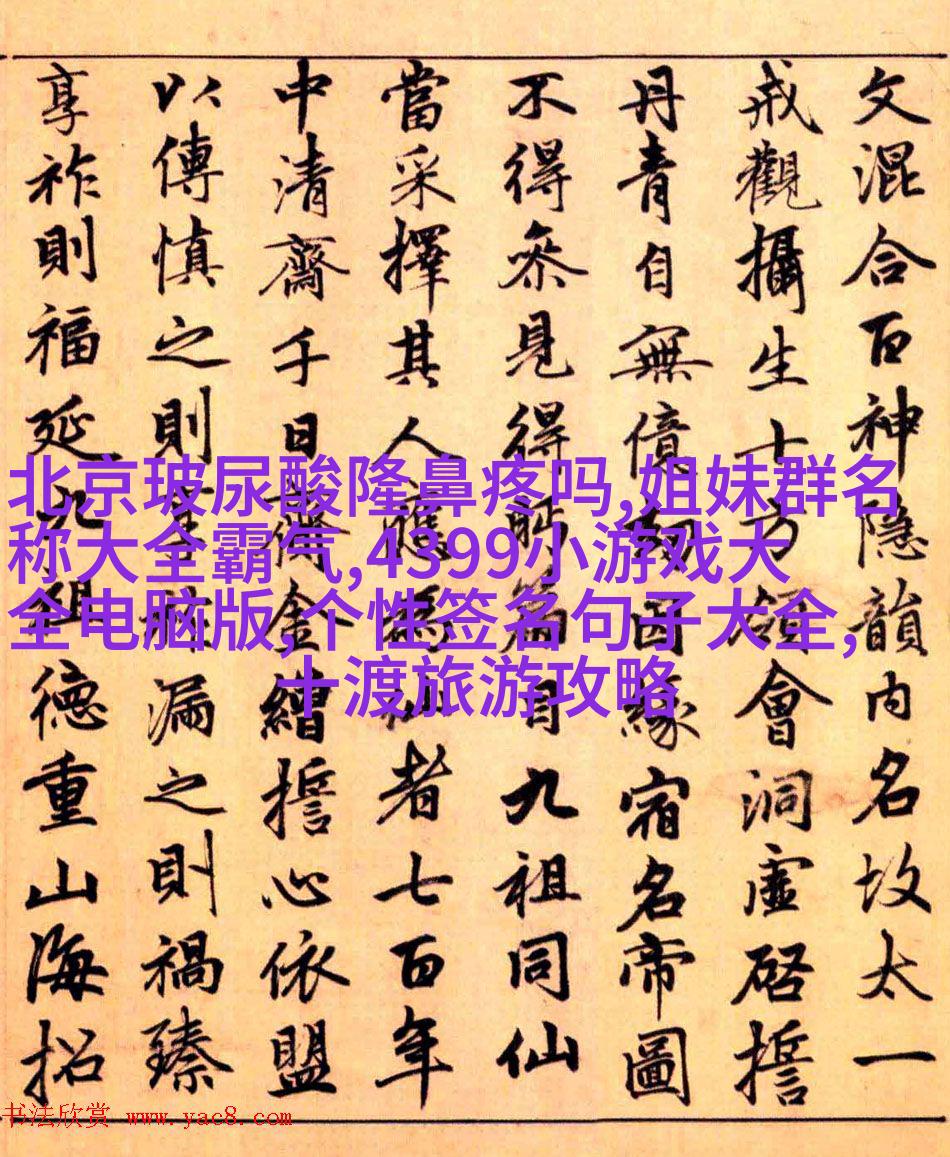 文混合百神隐韻内名故太一
戒觀攝生十方領會洞虛啓誓
丹青自無億劫因緣宿名帝圖
不得叅見得眄篇目九祖同仙
當采擇其人應爲仙者七百年
中清齋千日齎金繒誓心依盟
以傳慎之則漏之則禍臻
享祚則福延九祖德重山海招
北京玻尿酸隆鼻疼吗,姐妹群名
称大全霸气,4399小游戏大
全电脑版,个性签名句子大全,
十渡旅游攻略
书法欣赏 www.yac8.com